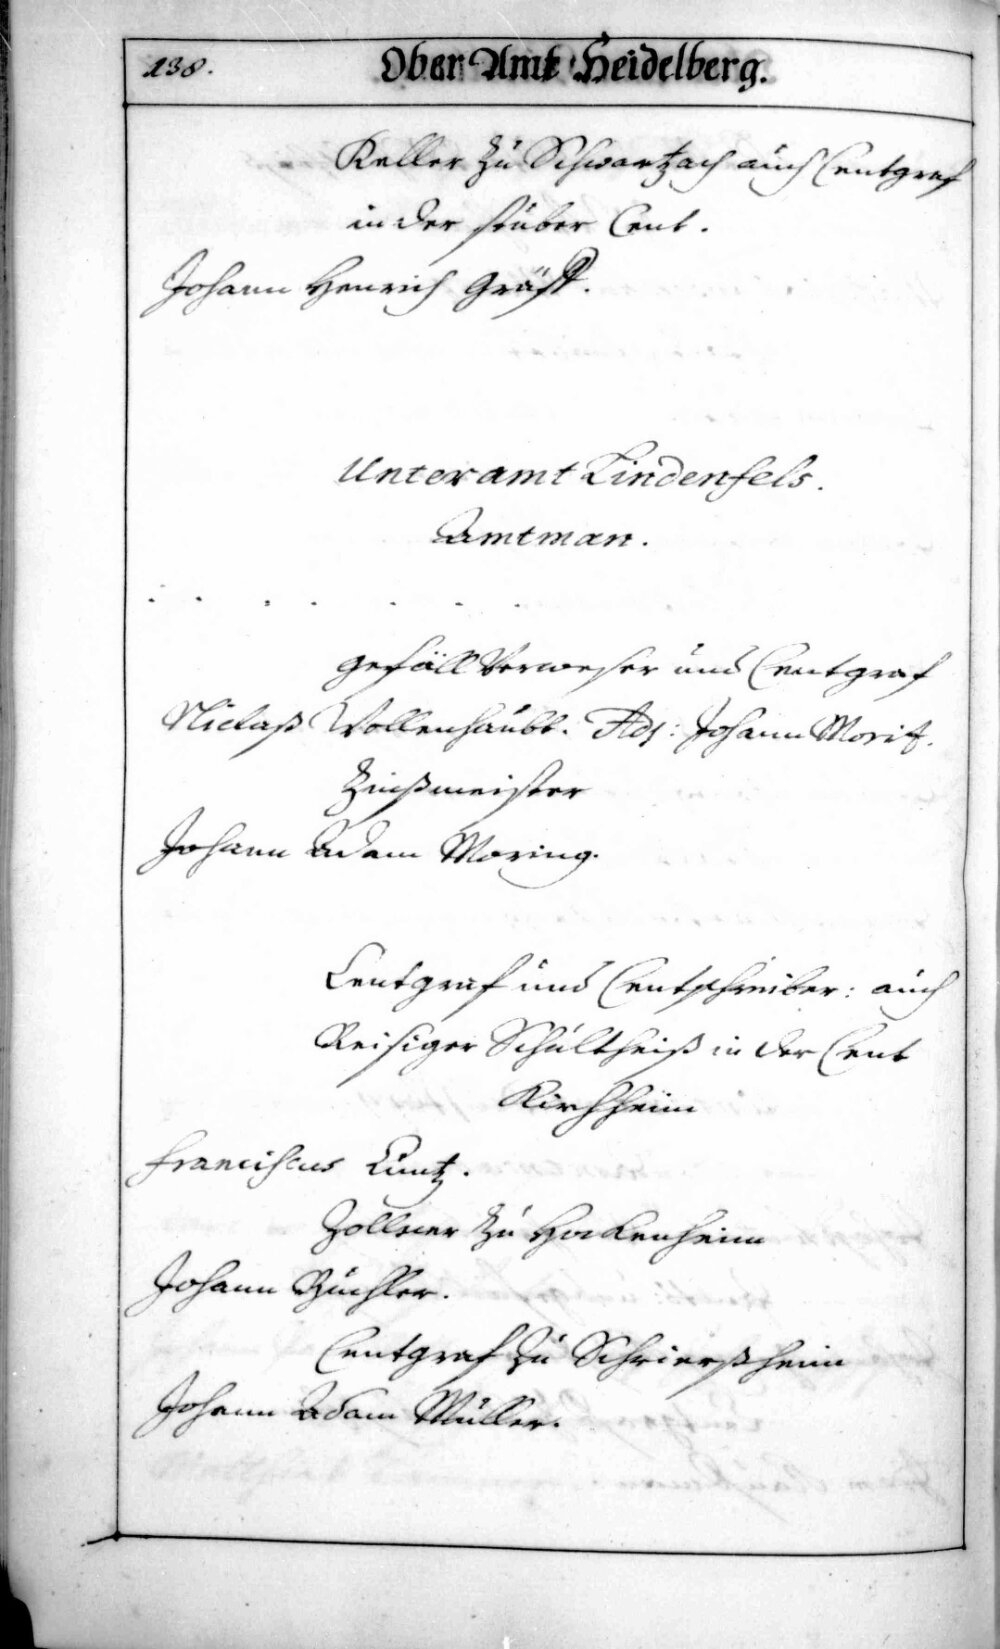 138.
Ober Amt Heidelberg.
Keller zu Schwartzach auch Centgraf
in der stüber Cent.
Johann Henrich
Unteramt Lindenfels.
Amtman.
. . . . . . .
gefäll Verweser und Centgraf
Niclaß Wollenhaubt. Adj: Johann Moritz.
Zinßmeister
Johann Adam Moring.
Centgraf und Centschreiber: auch
Reisiger Schultheiß in der Cent
Kirchheim
Franciscus Cuntz.
Zollner zu Hockenheim
Johann Büchler.
Centgraf zu Schrierßheim
Johann Adam Müller.